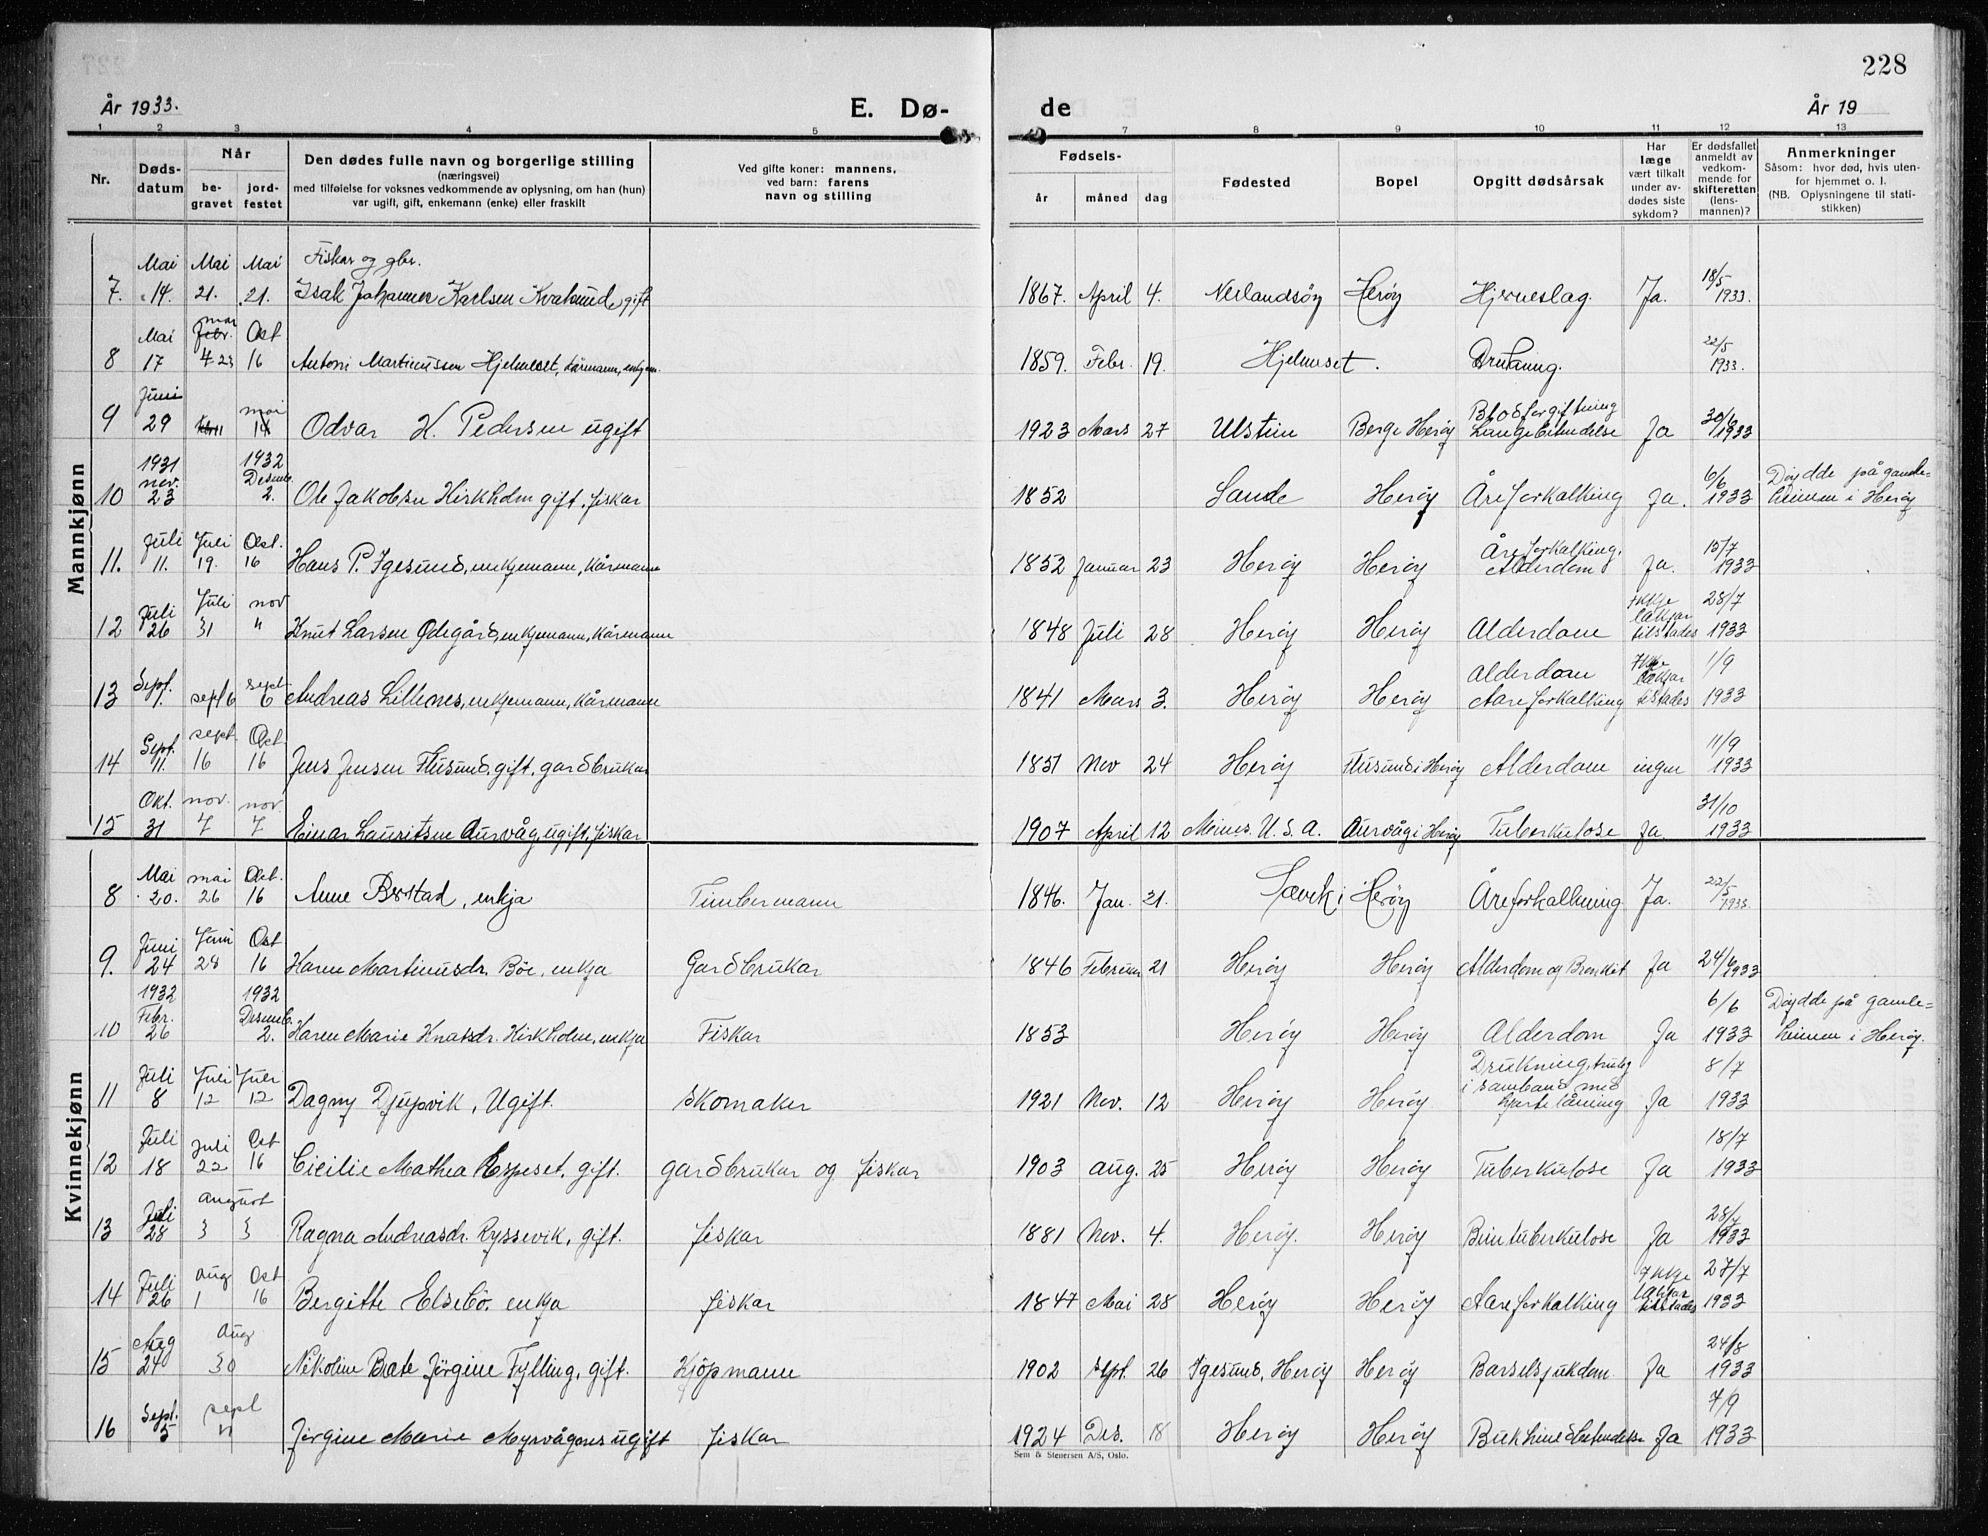 228
År 1933. E. Dø- de År 19
1 2 3 4 5 7 8 9 10 11 12 13
Nr. Døds-datum Når be-gravet jord-festet Den dødes fulle navn og borgerlige stilling (næringsvei) med tilføielse for voksnes vedkommende av oplysning, om han (hun) var ugift, gift, enkemann (enke) eller fraskilt Ved gifte koner: mannens, ved barn: farens navn og stilling Fødsels- år måned dag Fødested Bopel Opgitt dødsårsak Har læge vært tilkalt under av-dødes siste sykdom? Er dødsfallet anmeldt av vedkom-mende for skifteretten (lens-mannen)? Anmerkninger Såsom: hvor død, hvis uten-for hjemmet o. l. (NB. Oplysningene til stati-stikken)
Mannkjønn
Mai Mai Mai Fiskar og gbr.
7. 14. 21. 21. Isak Johannes Karlsen Kvalsund, gift 1867. April 4. Nerlandsøy Herøy Hjerneslag. Ja. 18/5 1933.
Mai Febr. mai Okt
8 17 4 23 16 Antoni Martinussen Hjelmeset, kårmann, enkjem. 1859. Febr. 19. Hjelmeset. Drukning. 22/5 1933.
Juni mai
9 29 14 Odvar K. Pedersen ugift 1923 Mars 27 Ulstein Berge Herøy Blodforgiftning Lungebetendelse Ja 30/6 1933
1931 nov. 1932 Desemb.
10 23 2. Ole Jakobsen Kirkholm gift, fiskar 1852 Sande Herøy Åreforkalking Ja. 6/6 1933 Døydde på gamle-heimen i Herøy
Juli Juli Okt.
11. 11. 19. 16 Hans P. Igesund, enkjemann, Kårmann 1852 Januar 23 Herøy Herøy Åreforkalking. Alderdom Ja. 15/7 1933
Juli Juli nov
12 26 31 " Knut Larsen Ødegård, enkjemann, Kårmann 1848 Juli 28 Herøy Herøy Alderdom Ikkje lækjar tilstades 28/7 1933
Sept. sept
13 1. sept 6 6 Andreas Lillenes, enkjemann, Kårmann 1841 Mars 3. Herøy Herøy Alderdom Aareforkalking Ikkje lækjar tilstades 1/9 1933
Sept. sept. Okt.
14 11. 16 16 Jens Jensen Flusund, gift, gardbrukar 1851 Nov 24 Herøy Flusund i Herøy Alderdom ingen 11/9 1933
Okt. nov. nov.
15 31 7 7 Einar Lauritsen Aurvåg, ugift, fiskar 1907 April 12 U.S.A. Aurvåg i Herøy Tuberkulose Ja. 31/10 1933
Kvinnekjønn
Mai mai Okt.
8 20. 26 16 Anne Berstad, enkja Timbermann 1846. Jan. 21. Sævik i Herøy Åreforkalkning Ja. 22/5 1933.
Juni Juni Okt
9. 24 28 16 Karen Martinusdr. Bøe, enkja Gardbrukar 1846 Februar 21 Herøy Herøy Alderdom og Bronkit Ja 24/6 1933
1932 Febr. 1932 Desemb.
10 26 2. Karen Marie Knutsdr. Kirkholm, enkja Fiskar 1853 Herøy Herøy Alderdom Ja 6/6 1933 Døydde på gamle-heimen i Herøy.
Juli Juli Juli
11 8 12 12 Dagny Djupvik, Ugift. Skomaker 1921 Nov. 12 Herøy Herøy Drukning, truleg i samband med hjertelåming Ja 8/7 1933
Juli Juli Okt
12 18 22 16 Cicilie Mathea Espeset, gift. gardbrukar og fiskar 1903 aug. 25 Herøy Herøy Tuberkulose Ja 18/7 1933
Juli august
13 28 3 3 Ragna Andreasdr. Ryssevik, gift. fiskar 1881 Nov. 4. Herøy. Herøy Beintuberkulose Ja 28/7 1933
Juli aug Okt
14 26 1 16 Bergitte Elsebø. enkja fiskar 1847 Mai 28 Herøy Herøy Aareforkalking Ikkje lækjar tilstades 27/7 1933
Aug aug
15 24 30 Nikoline Jørgine Fylling, gift. Kjøpmann 1902 Sept. 26 Igesund, Herøy Herøy Barselsjukdom. Ja 24/8 1933
Sept. sept
16 5 11 Jørgine Marie Myrvågnes ugift fiskar 1924 Des. 18 Herøy Herøy Bukhinebetendelse Ja 7/9 1933
Sem & Stenersen A/S, Oslo.